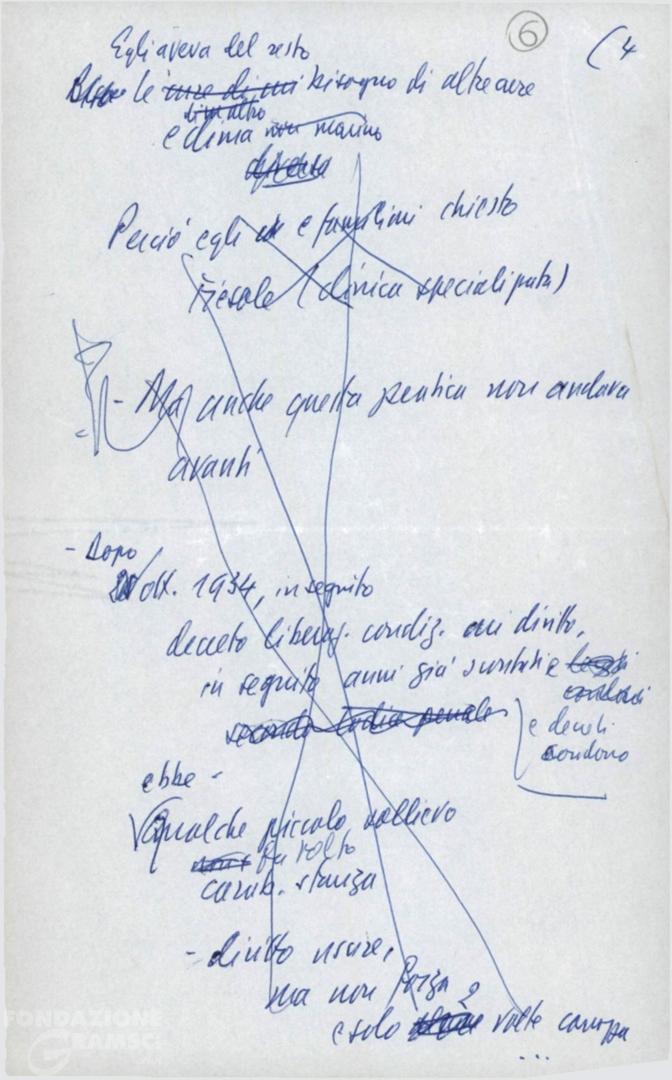 6
(4
Egli aveva del resto
le cure di cui bisogno di altre cure
e clima non marino
Perciò egli e famil. chiesto
Fiesole (clinica specializzata)
- Ma anche questa pratica non andava
avanti
- Dopo
ott. 1934, in seguito
decreto liberaz. condiz. cui diritto,
in seguito anni già scontati e
secondo Codice penale
e decreti
condono
ebbe -
Qualche piccolo sollievo
fu tolto
carab. stanza
- diritto uscire,
ma non forza
2
e solo volte carrozza
...
FONDAZIONE
GRAMSCI